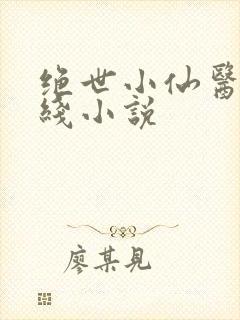 绝世小仙醫
綫小説
廖某見